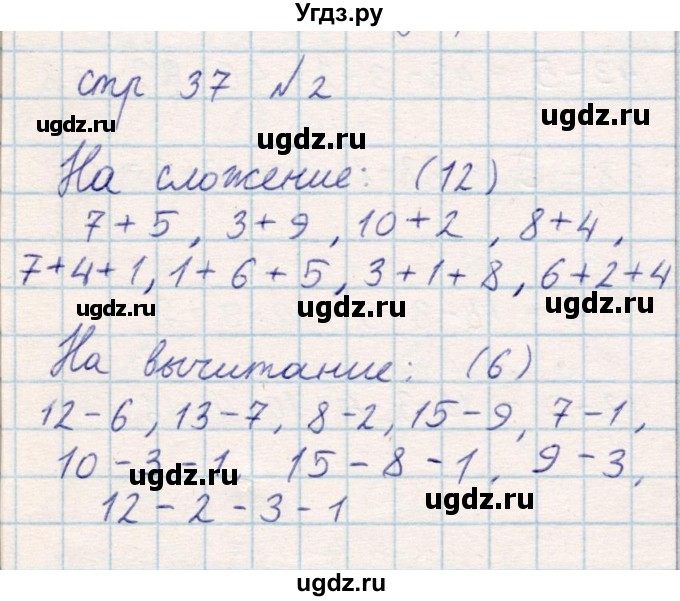 Угдз.ру
стр 37 №2
ugdz.ru ugdz.ru ugdz.ru
На сложение: (12)
7+5, 3+9, 10+2, 8+4,
7+4+1, 1+6+5, 3+1+8, 6+2+4
ugdz.ru ugdz.ru ugdz.ru
На вычитание: (6)
12-6, 13-7, 8-2, 15-9, 7-1,
10-3-1, 15-8-1, 9-3,
ugdz.ru ugdz.ru
12-2-3-1
ugdz.ru